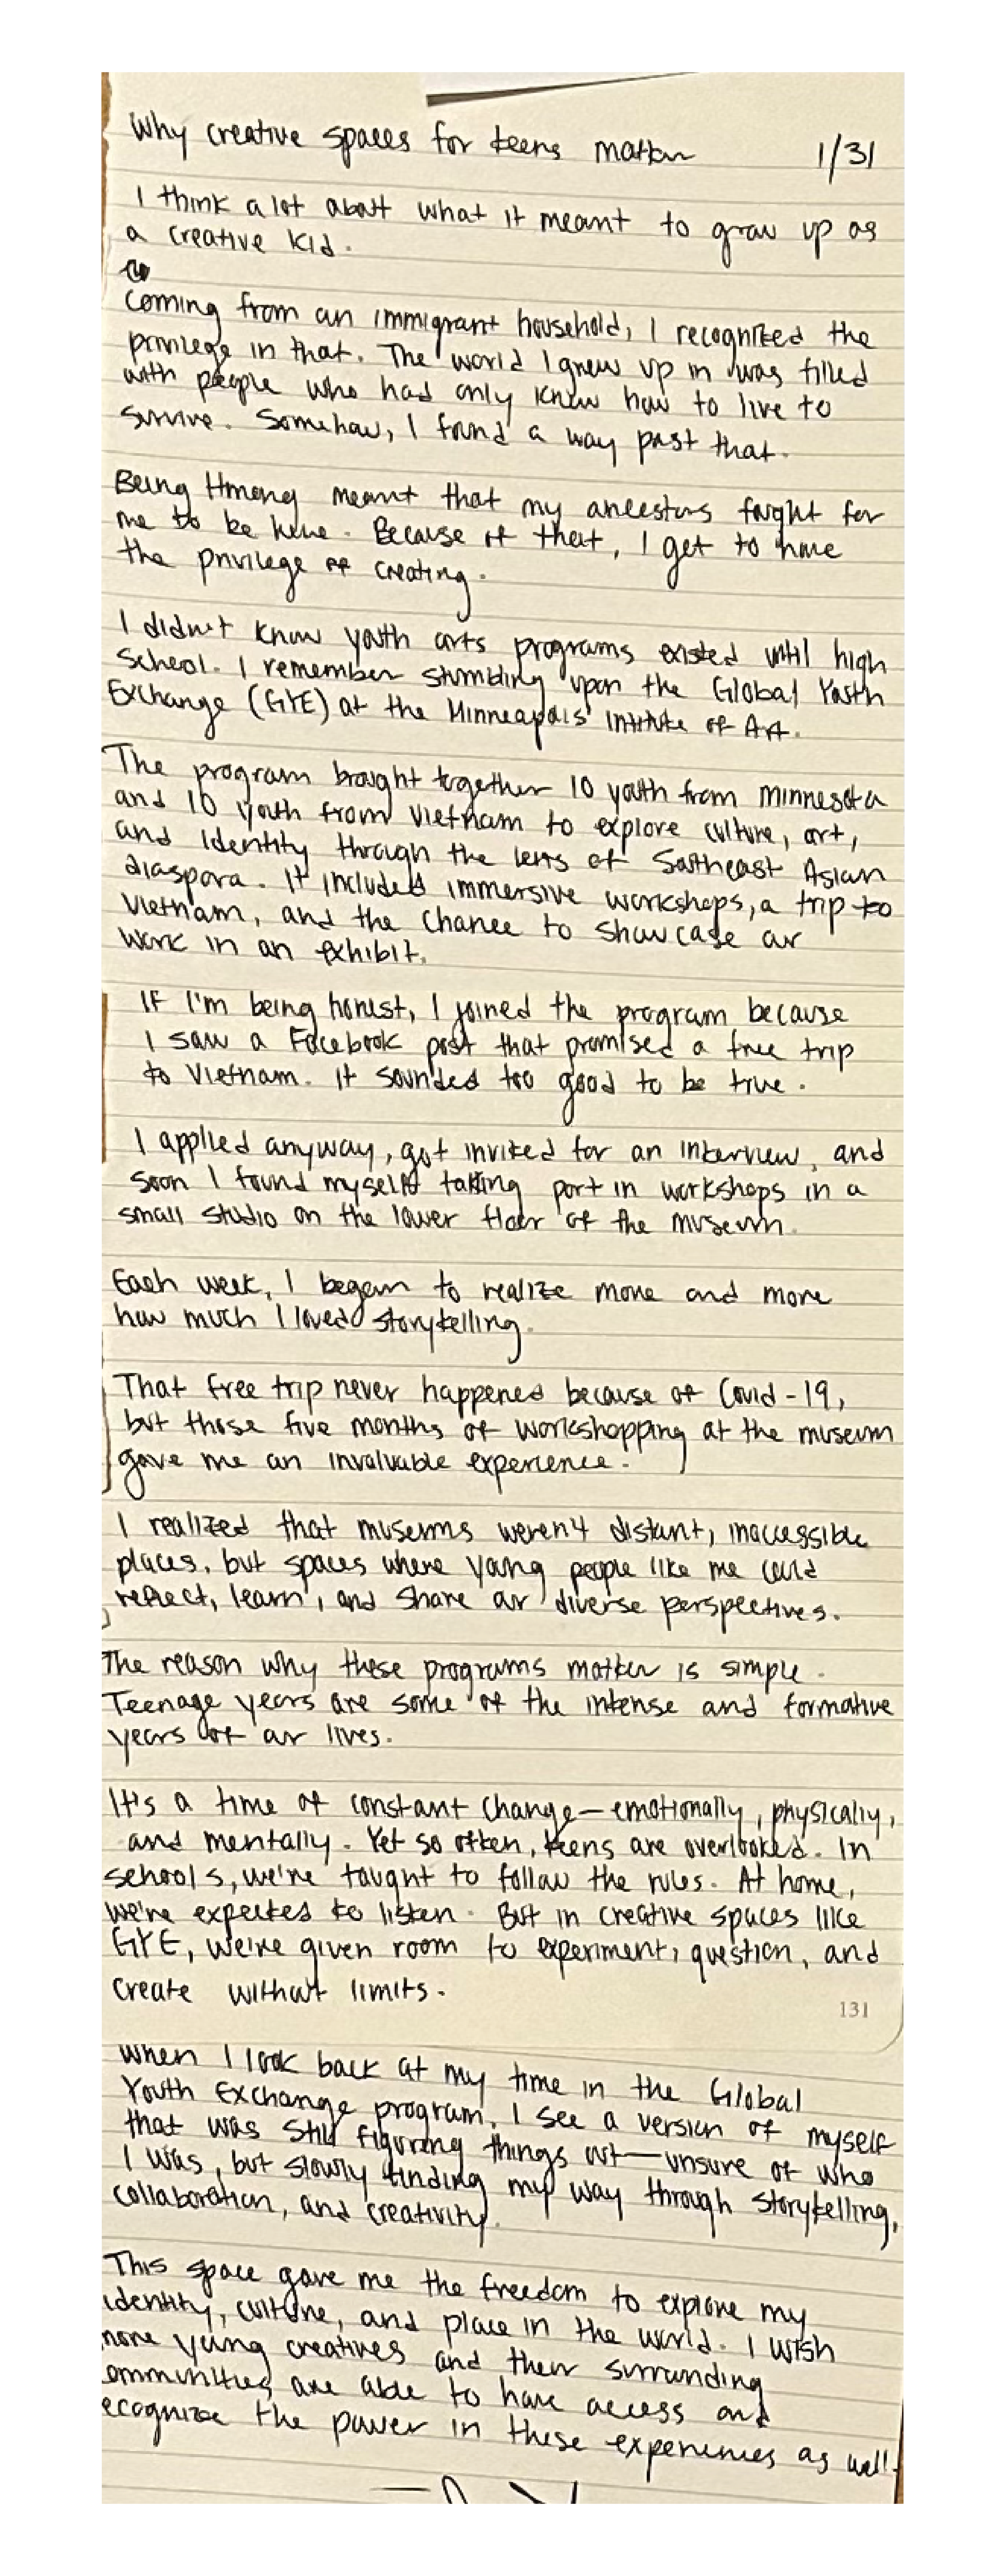 Why creative spaces for teens matter 1/31
I think a lot about what it meant to grow up as
a creative kid.
Coming from an immigrant household, I recognized the
privilege in that. The world I grew up in was filled
with people who had only knew how to live to
survive. Somehow, I found a way past that.
Being Hmong meant that my ancestors fought for
me to be here. Because of that, I get to have
the privilege of creating.
I didn't know youth arts programs existed until high
school. I remember stumbling upon the Global Youth
Exchange (GYE) at the Minneapolis Intitute of Art.
The program brought together 10 youth from Minnesota
and 10 youth from Vietnam to explore culture, art,
and identity through the lens of Southeast Asian
diaspora. It included immersive workshops, a trip to
Vietnam, and the chance to showcase our
work in an exhibit.
If I'm being honest, I joined the program because
I saw a Facebook post that promised a free trip
to Vietnam. It sounded too good to be true.
I applied anyway, got invited for an interview, and
soon I found myself taking part in workshops in a
small studio on the lower floor of the museum.
Each week, I began to realize more and more
how much I loved storytelling.
That free trip never happened because of Covid-19,
but those five months of workshopping at the museum
gave me an invaluable experience.
I realized that museums weren't distant, inaccessible
places, but spaces where young people like me could
reflect, learn, and share our diverse perspectives.
The reason why these programs matter is simple.
Teenage years are some of the intense and formative
years of our lives.
It's a time of constant change—emotionally, physically,
and mentally. Yet so often, teens are overlooked. In
schools, we're taught to follow the rules. At home,
we're expected to listen. But in creative spaces like
GYE, we're given room to experiment, question, and
create without limits.
131
When I look back at my time in the Global
Youth Exchange program, I see a version of myself
that was still figuring things out—unsure of who
I was, but slowly finding my way through storytelling,
collaboration, and creativity.
This space gave me the freedom to explore my
identity, culture, and place in the world. I wish
more young creatives and their surrounding
ommunities are able to have access and
ecognize the power in these experiences as well.